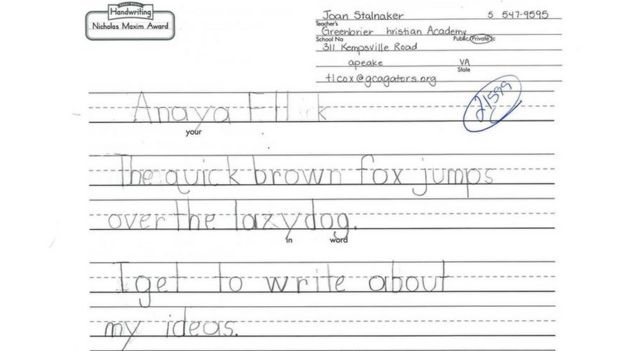 Handwriting
Nicholas Maxim Award
Joan Stalnaker 5 547-9595
Teacher's
Greenbrier hristian Academy
School Na Public Private
311 Kempsville Road
apeake VA
State
tlcox@gcagators.org
21599
Anaya Ell k
your
The quick brown fox jumps
over the lazy dog.
in word
I get to write about
my ideas.